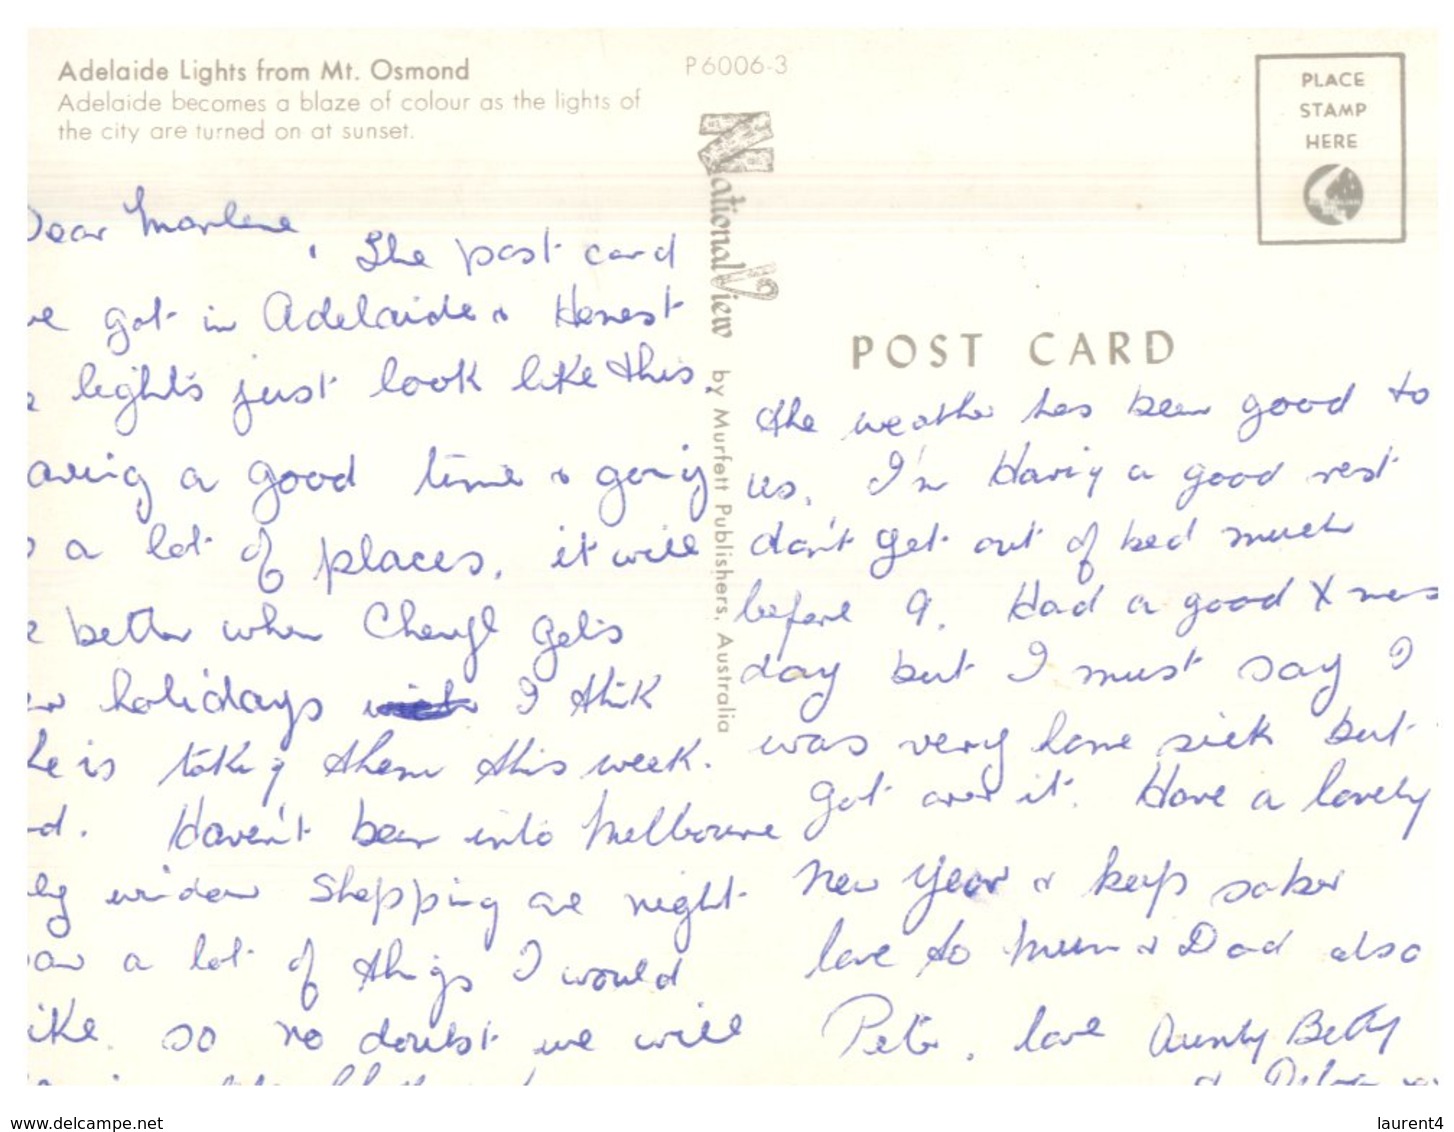 Adelaide Lights from Mt. Osmond
Adelaide becomes a blaze of colour as the lights of
the city are turned on at sunset.
P6006-3
PLACE
STAMP
HERE
National View by Murfett Publishers, Australia
POST CARD
Dear Marlene,
The post card
we got in Adelaide & Honest
lights just look like this.
aving a good time & going
a lot of places, it will
better when Cheryl gets
holidays I think
he is taking them this week.
Haven't been into Melbourne
window shopping one night
aw a lot of things I would
ike. so no doubt we will
the weather has been good to
us. I'm Having a good rest
don't get out of bed much
before 9. Had a good Xmas
day but I must say I
was very home sick but
got over it. Have a lovely
New Year & keep sober
love to Mum & Dad also
Peter, love Aunty Betty
&
www.delcampe.net
laurent4